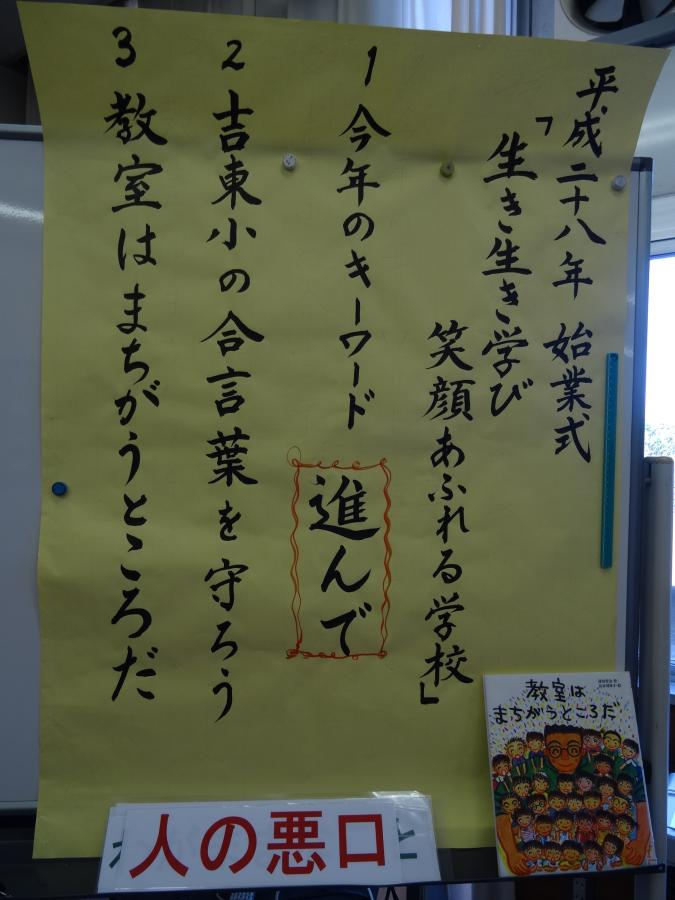 平成二十八年 始業式
「生き生き学び
笑顔あふれる学校」
1 今年のキーワード 進んで
2 吉東小の合言葉を守ろう
3 教室はまちがうところだ
人の悪口
と
教室は
まちがうところだ